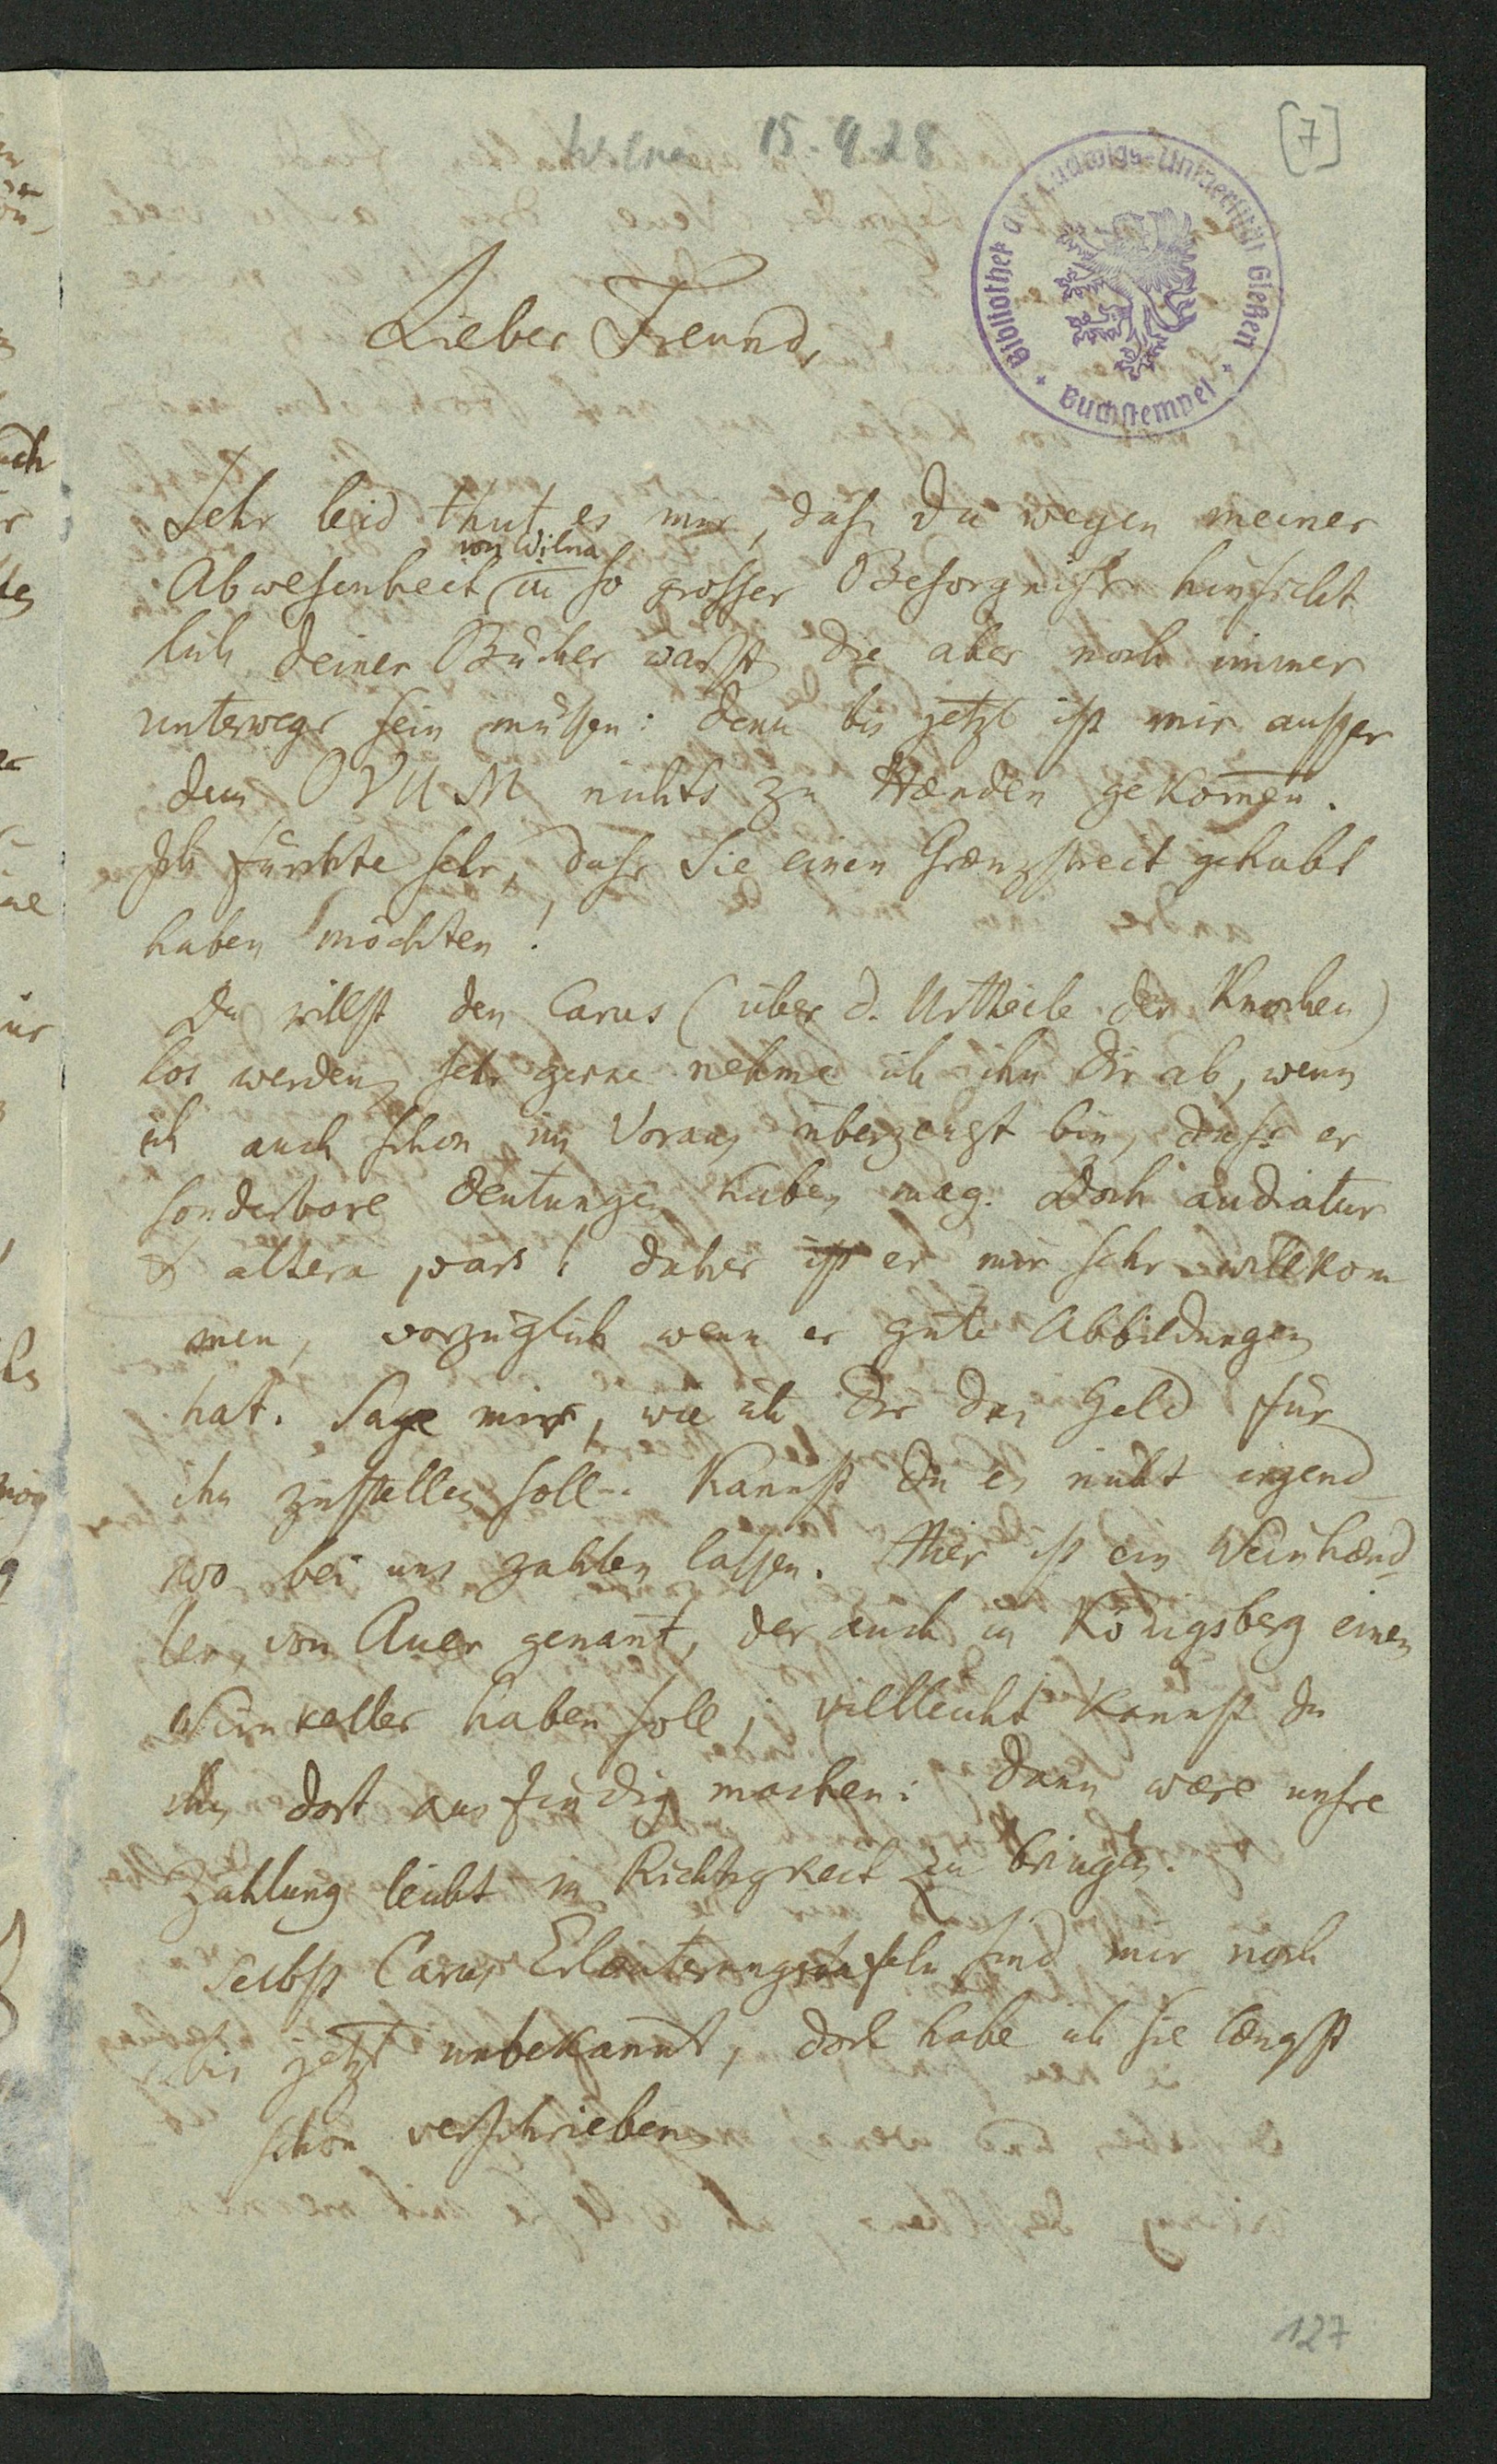 Wilna 15.4.28
[7]
Bibliothek der Ludwigs-Universität Gießen
Buchstempel
Lieber Freund,
Sehr leid thut es mir, dass Du wegen meiner
von Wilna
Abwesenheit in so grosser Besorgniss hinsicht
lich deiner Bücher warst, die aber noch immer
unterwegs sein müssen: denn bis jetzt ist mir ausser
dem OVUM nichts zu Hænden gekom̅en.
Ich fürchte sehr, dass sie einen Grænzstreit gehabt
haben möchten!
Du willst den Carus (über d. Urtheile der Knochen)
los werden, sehr gerne nehme ich ihn Dir ab, wenn
ich auch schon im Voraus überzeugt bin, dass er
sonderbare Deutungen haben mag. Doch audiatur
& altera pars! daher ist er mir sehr willkom
men, vorzüglich wenn er gute Abbildungen
hat. Sage mir, wie ich Dir das Geld für
ihn zustellen soll. Kannst Du es nicht irgend
wo bei uns zahlen lassen. Hier ist ein Weinhænd
ler, von Auer genan̅t, der auch in Königsberg einen
Weinkeller haben soll; villeicht kannst Du
ihn dort ausfindig machen: dann wære unsre
Zahlung leicht in Richtigkeit zu bringen.
Selbst Carus Erlæuterungstafeln sind mir noch
bis jetzt unbekannt, doch habe ich sie længst
schon verschrieben
127